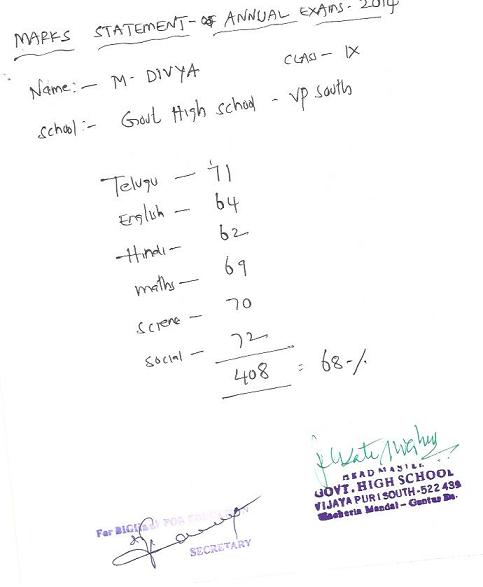 MARKS STATEMENT - OF ANNUAL EXAMS - 2014
Name:- M. DIVYA CLASS - IX
School:- Govt High school - VP South
Telugu - 71
English - 64
Hindi - 62
maths - 69
Sciene - 70
Social - 72
408 = 68-%
HEAD MASTER
GOVT. HIGH SCHOOL
VIJAYA PURI SOUTH-522 439
Macherla Mandal - Guntur Dt.
SECRETARY